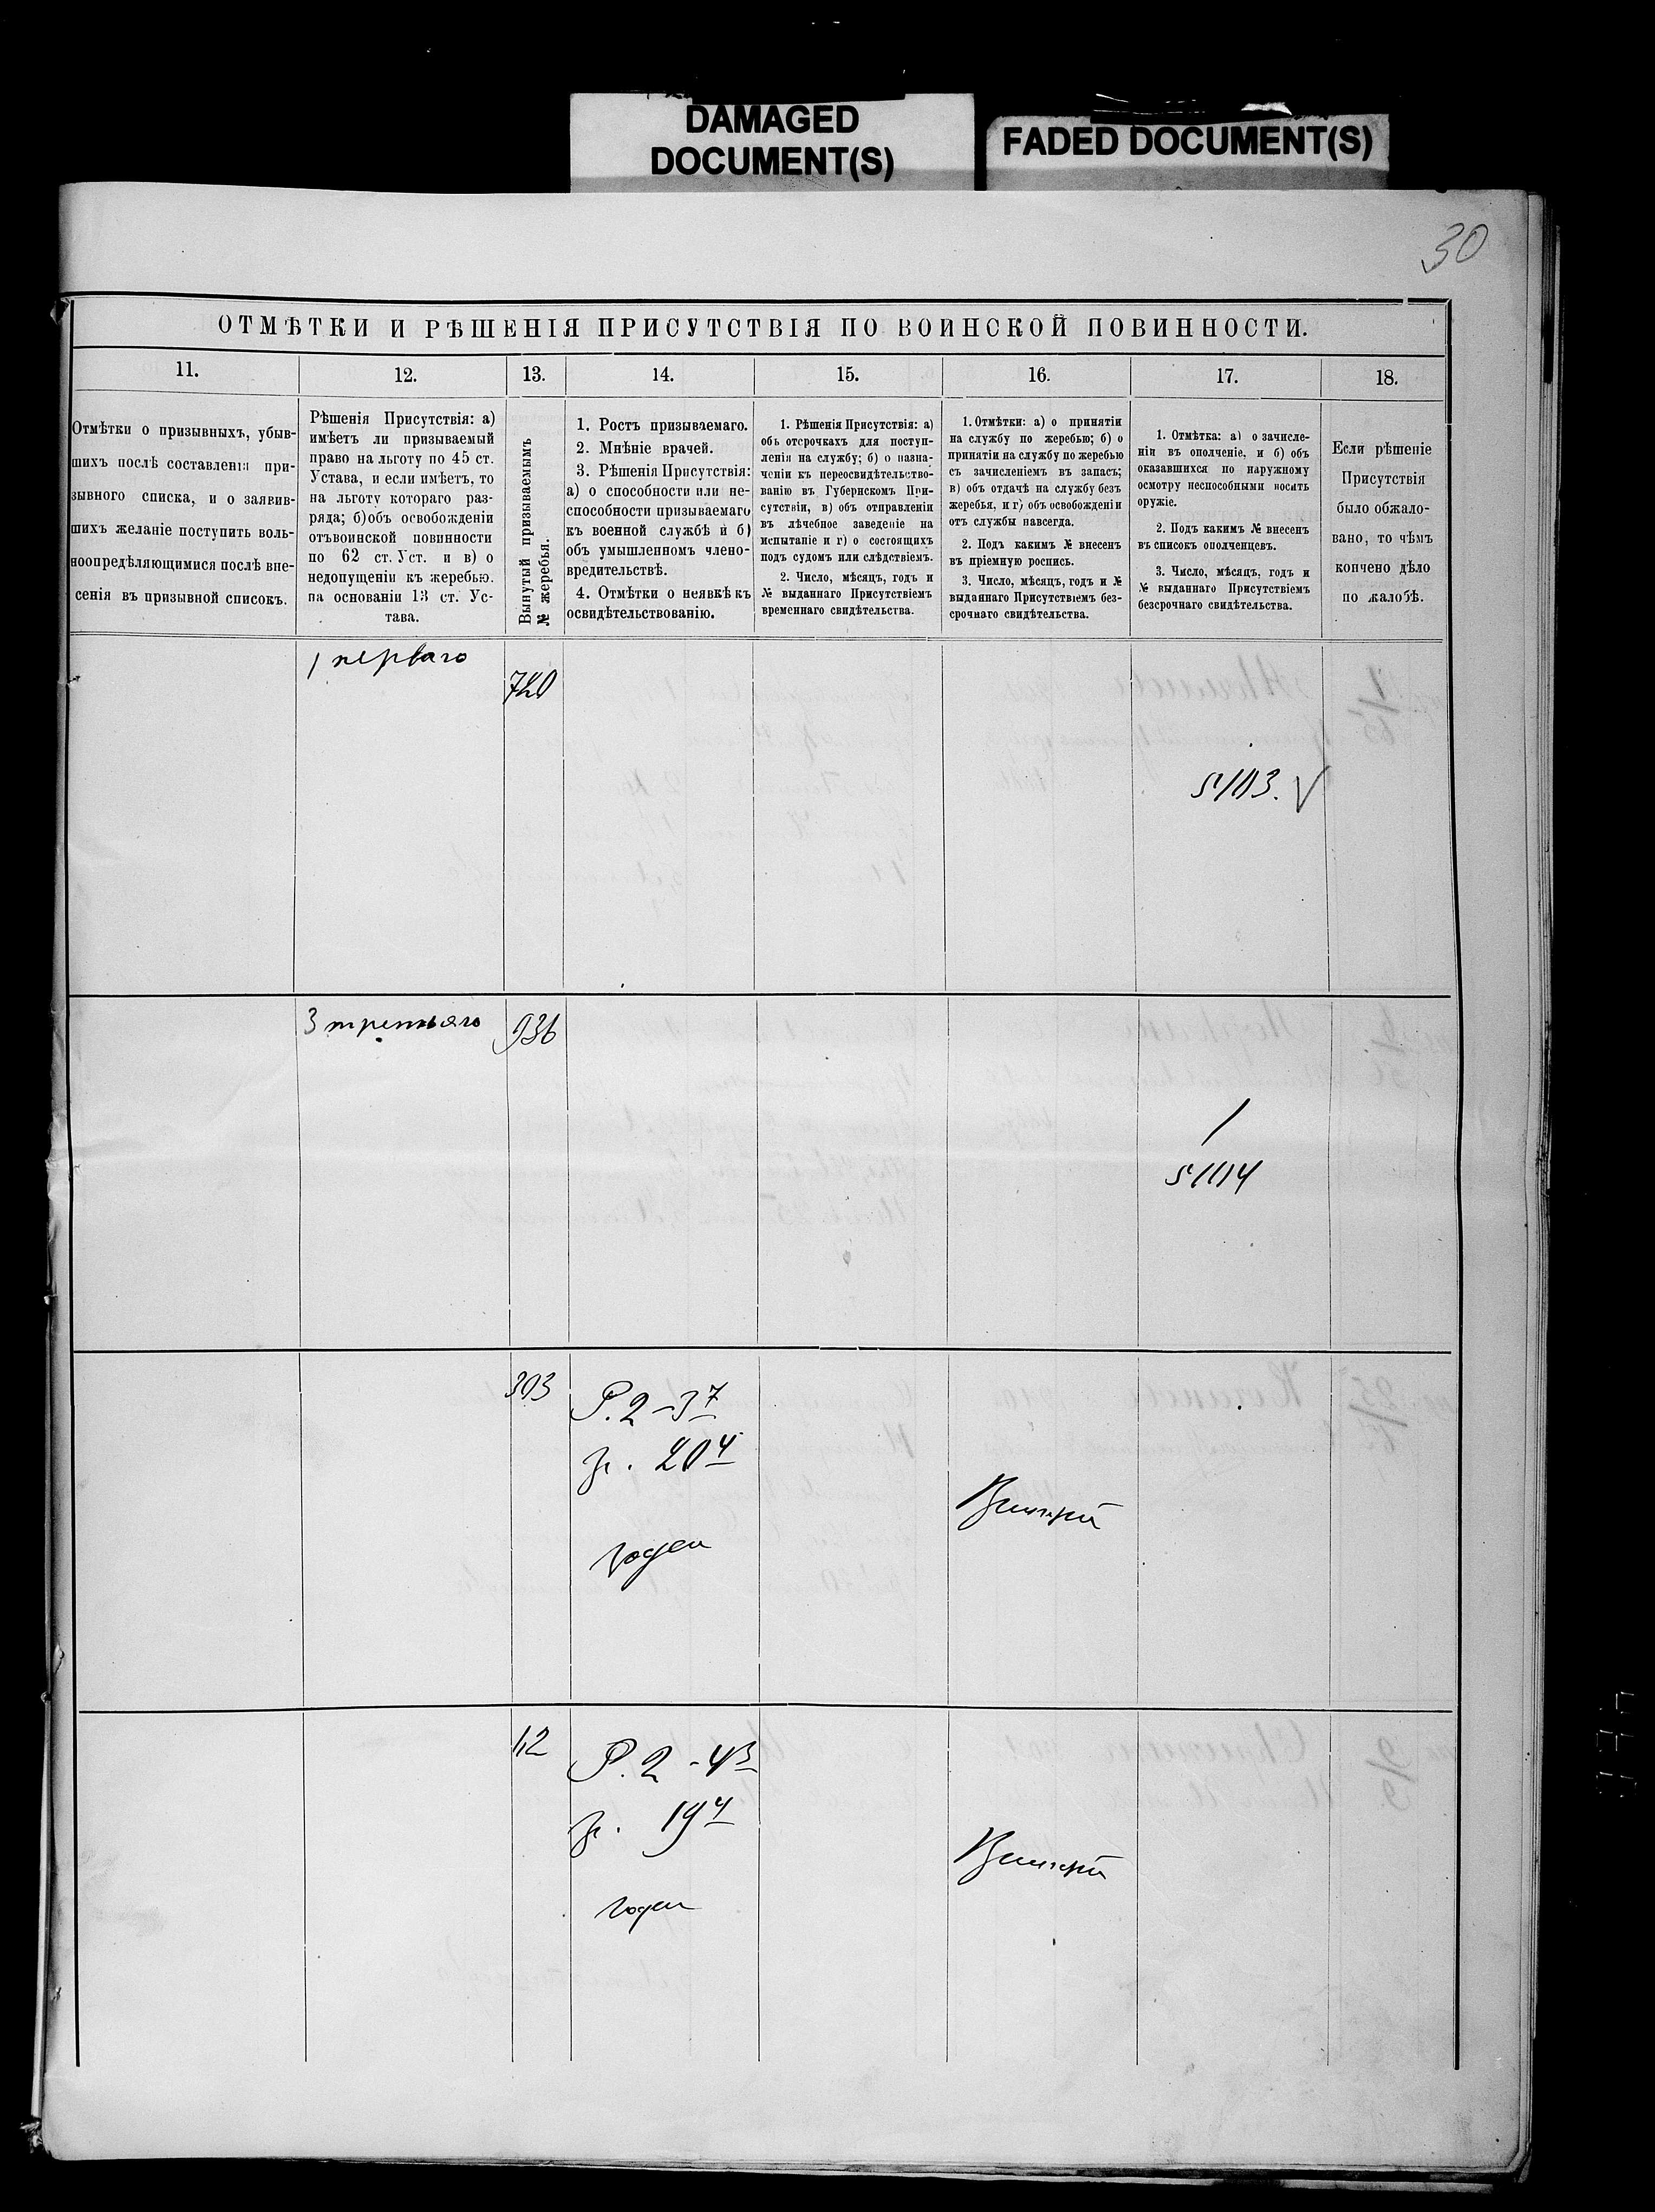 DAMAGED
DOCUMENT(S)
FADED DOCUMENT(S)
30
ОТМѢТКИ И РѢШЕНІЯ ПРИСУТСТВІЯ ПО ВОИНСКОЙ ПОВИННОСТИ.
11.
12.
13.
14.
15.
16.
17.
18.
Отмѣтки о призывныхъ, убыв-
шихъ послѣ составленія при-
зывного списка, и о заявив-
шихъ желаніе поступить воль-
ноопредѣляющимися послѣ вне-
сенія въ призывной списокъ.
Рѣшенія Присутствія: а)
имѣетъ ли призываемый
право на льготу по 45 ст.
Устава, и если имѣетъ, то
на льготу котораго раз-
ряда; б) объ освобожденіи
отъ воинской повинности
по 62 ст. Уст. и в) о
недопущеніи къ жеребью.
на основаніи 13 ст. Ус-
тава.
Вынутый призываемымъ
№ жеребья.
1. Ростъ призываемаго.
2. Мнѣніе врачей.
3. Рѣшенія Присутствія:
а) о способности или не-
способности призываемаго
къ военной службѣ и б)
объ умышленномъ члено-
вредительствѣ.
4. Отмѣтки о неявкѣ къ
освидѣтельствованію.
1. Рѣшенія Присутствія: а)
объ отсрочкахъ для поступ-
ленія на службу; б) о назна-
ченіи къ переосвидѣтельство-
ванію въ Губернскомъ При-
сутствіи, в) объ отправленіи
въ лѣчебное заведеніе на
испытаніе и г) о состоящихъ
подъ судомъ или слѣдствіемъ.
2. Число, мѣсяцъ, годъ и
№ выданнаго Присутствіемъ
временнаго свидѣтельства.
1. Отмѣтки: а) о принятіи
на службу по жеребью; б) о
принятіи на службу по жеребью
съ зачисленіемъ въ запасъ;
в) объ отдачѣ на службу безъ
жеребья, и г) объ освобожденіи
отъ службы навсегда.
2. Подъ какимъ № внесенъ
въ пріемную роспись.
3. Число, мѣсяцъ, годъ и №
выданнаго Присутствіемъ без-
срочнаго свидѣтельства.
1. Отмѣтка: а) о зачисле-
ніи въ ополченіе, и б) объ
оказавшихся по наружному
осмотру неспособными носить
оружіе.
2. Подъ какимъ № внесенъ
въ списокъ ополченцевъ.
3. Число, мѣсяцъ, годъ и
№ выданнаго Присутствіемъ
безсрочнаго свидѣтельства.
Если рѣшеніе
Присутствія
было обжало-
вано, то чѣмъ
кончено дѣло
по жалобѣ.
1 перваго
720
3 третьяго
936
303
Р. 2 - 3 7
г. 20 4
годен
112
Р. 2 - 4 3
г. 19 4
годен